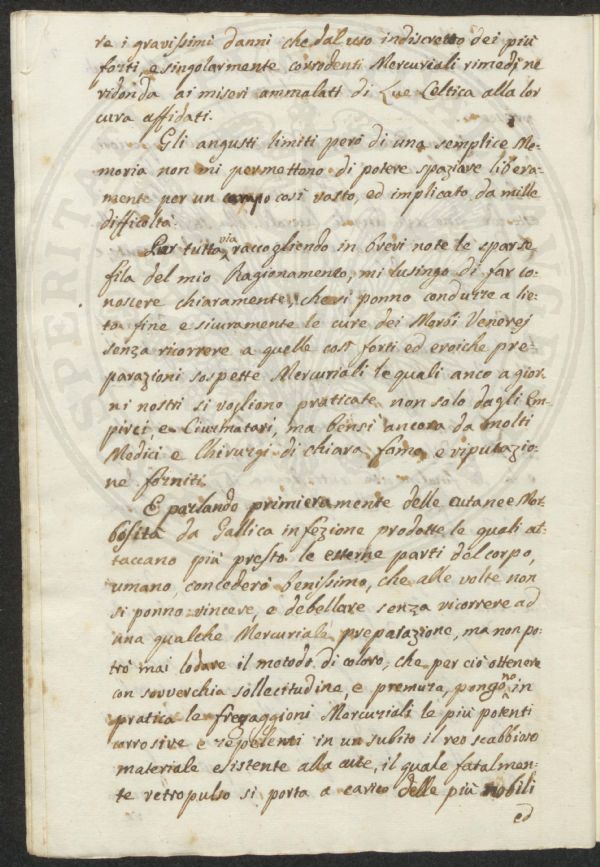 re i gravissimi danni che dal uso indiscretto dei più
forti, e singolarmente corrodenti Mercuriali rimedj ne
ridonda ai miseri ammalati di Lue Celtica alla lor
cura affidati.
Gli angusti limiti però di una semplice Me=
moria non mi permettono di potere spaziare libera=
mente per un campo così vasto, ed implicato da mille
difficoltà.
Pur tutta via raccogliendo in brevi note le sparse
fila del mio Ragionamento, mi lusingo di far co=
noscere chiaramente, che si ponno condurre a lie=
to fine e siuramente le cure dei Morbi Venerej
senza ricorrere a quelle così forti ed eroiche pre=
parazioni sospette Mercuriali le quali anco a gior=
ni nostri si vogliono praticate non solo dagli Em=
pirci, e Ciurmatari, ma bensì ancora da molti
Medici e Chirurgi di chiara fama, e riputazio=
ne forniti.
E parlando primieramente delle cutanee Mor=
bosità da Gallica infezione prodotte le quali at=
taccano più presto le esterne parti del corpo,
umano, concederò benissimo, che alle volte non
si ponno vincere, e debellare senza ricorrere ad
una qualche Mercuriale preparazione, ma non po=
trò mai lodare il motodo di coloro, che per ciò ottenere
con sovverchia sollecitudine, e premura, pongono in
pratica le fregaggioni Mercuriali le più potenti
corrosive e repellenti in un subito il reo scabbioso
materiale esistente alla cute, il quale fatalmen=
te retropulso si porta a carico delle più nobili
ed
SPERITAT